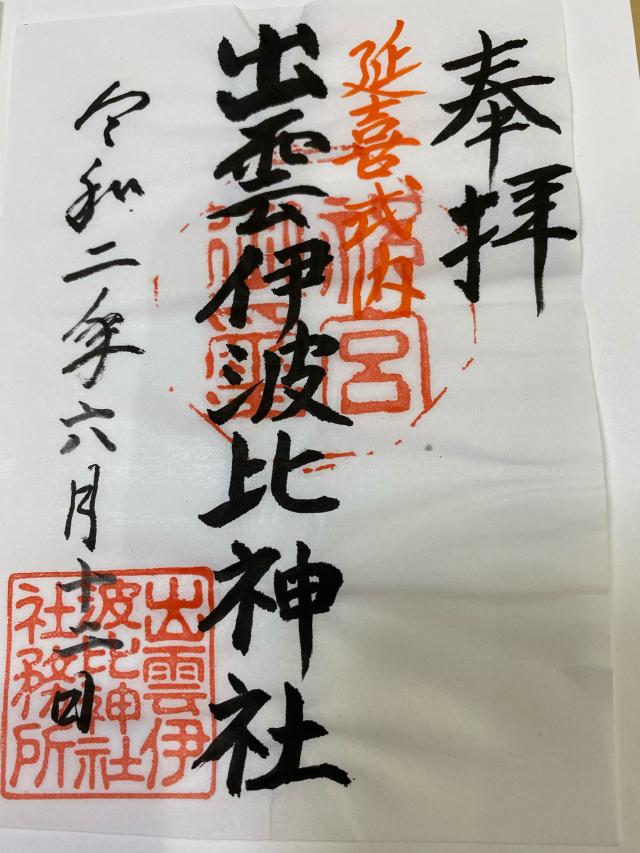 奉拝
延喜式内
出雲伊波比神社
令和二年六月十二日
出雲伊
波比神社
社務所